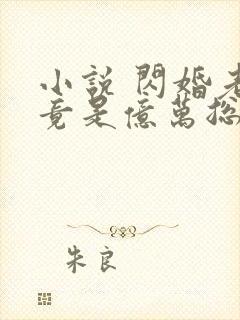 小說 閃婚老
竟是億萬總
朱良